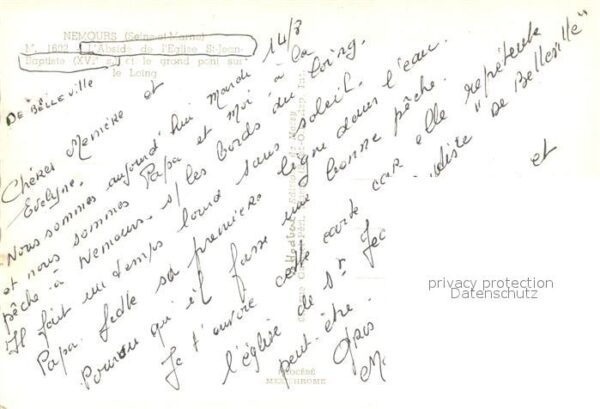 NEMOURS (Seine-et-Marne)
N° 1602 - L'Abside de l'Eglise St-Jean-
Baptiste (XVe s.) et le grand pont sur
le Loing
DE BELLEVILLE
Chères Mémère et
Evelyne.
Nous sommes aujourd'hui Mardi 14/8
et nous sommes Papa et Moi à la
pêche à Nemours. s/ les bords du Loing.
Il fait un temps lourd sans soleil.
Papa jette sa première ligne dans l'eau.
Pourvu qu'il fasse une bonne pêche.
Je t'envoie cette carte car elle représente
l'église de St Jea
DE Belleville"
peut-être.
et
Gros
MEXICHROME
privacy protection
Datenschutz